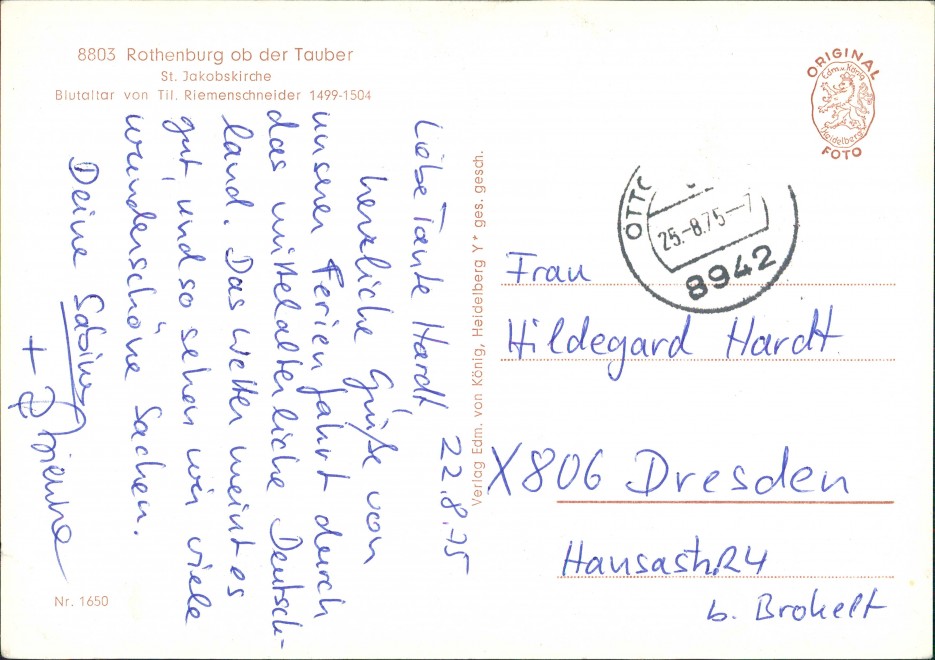 8803 Rothenburg ob der Tauber
St. Jakobskirche
Blutaltar von Til. Riemenschneider 1499-1504
22.8.75
Liebe Tante Hardt,
herzliche Grüße von
unserer Ferienfahrt durch
das mittelalterliche Deutsch-
land. Das Wetter meint es
gut, und so sehen wir viele
wunderschöne Sachen.
Deine Sabine
+
Nr. 1650
Verlag Edm. von König, Heidelberg Y+ ges. gesch.
ORIGINAL
Edm. v. König
Heidelberg
FOTO
OTTO
25.-8.75--7
8942
Frau
Hildegard Hardt
X806 Dresden
Hansastr. 24
b. Brokelt